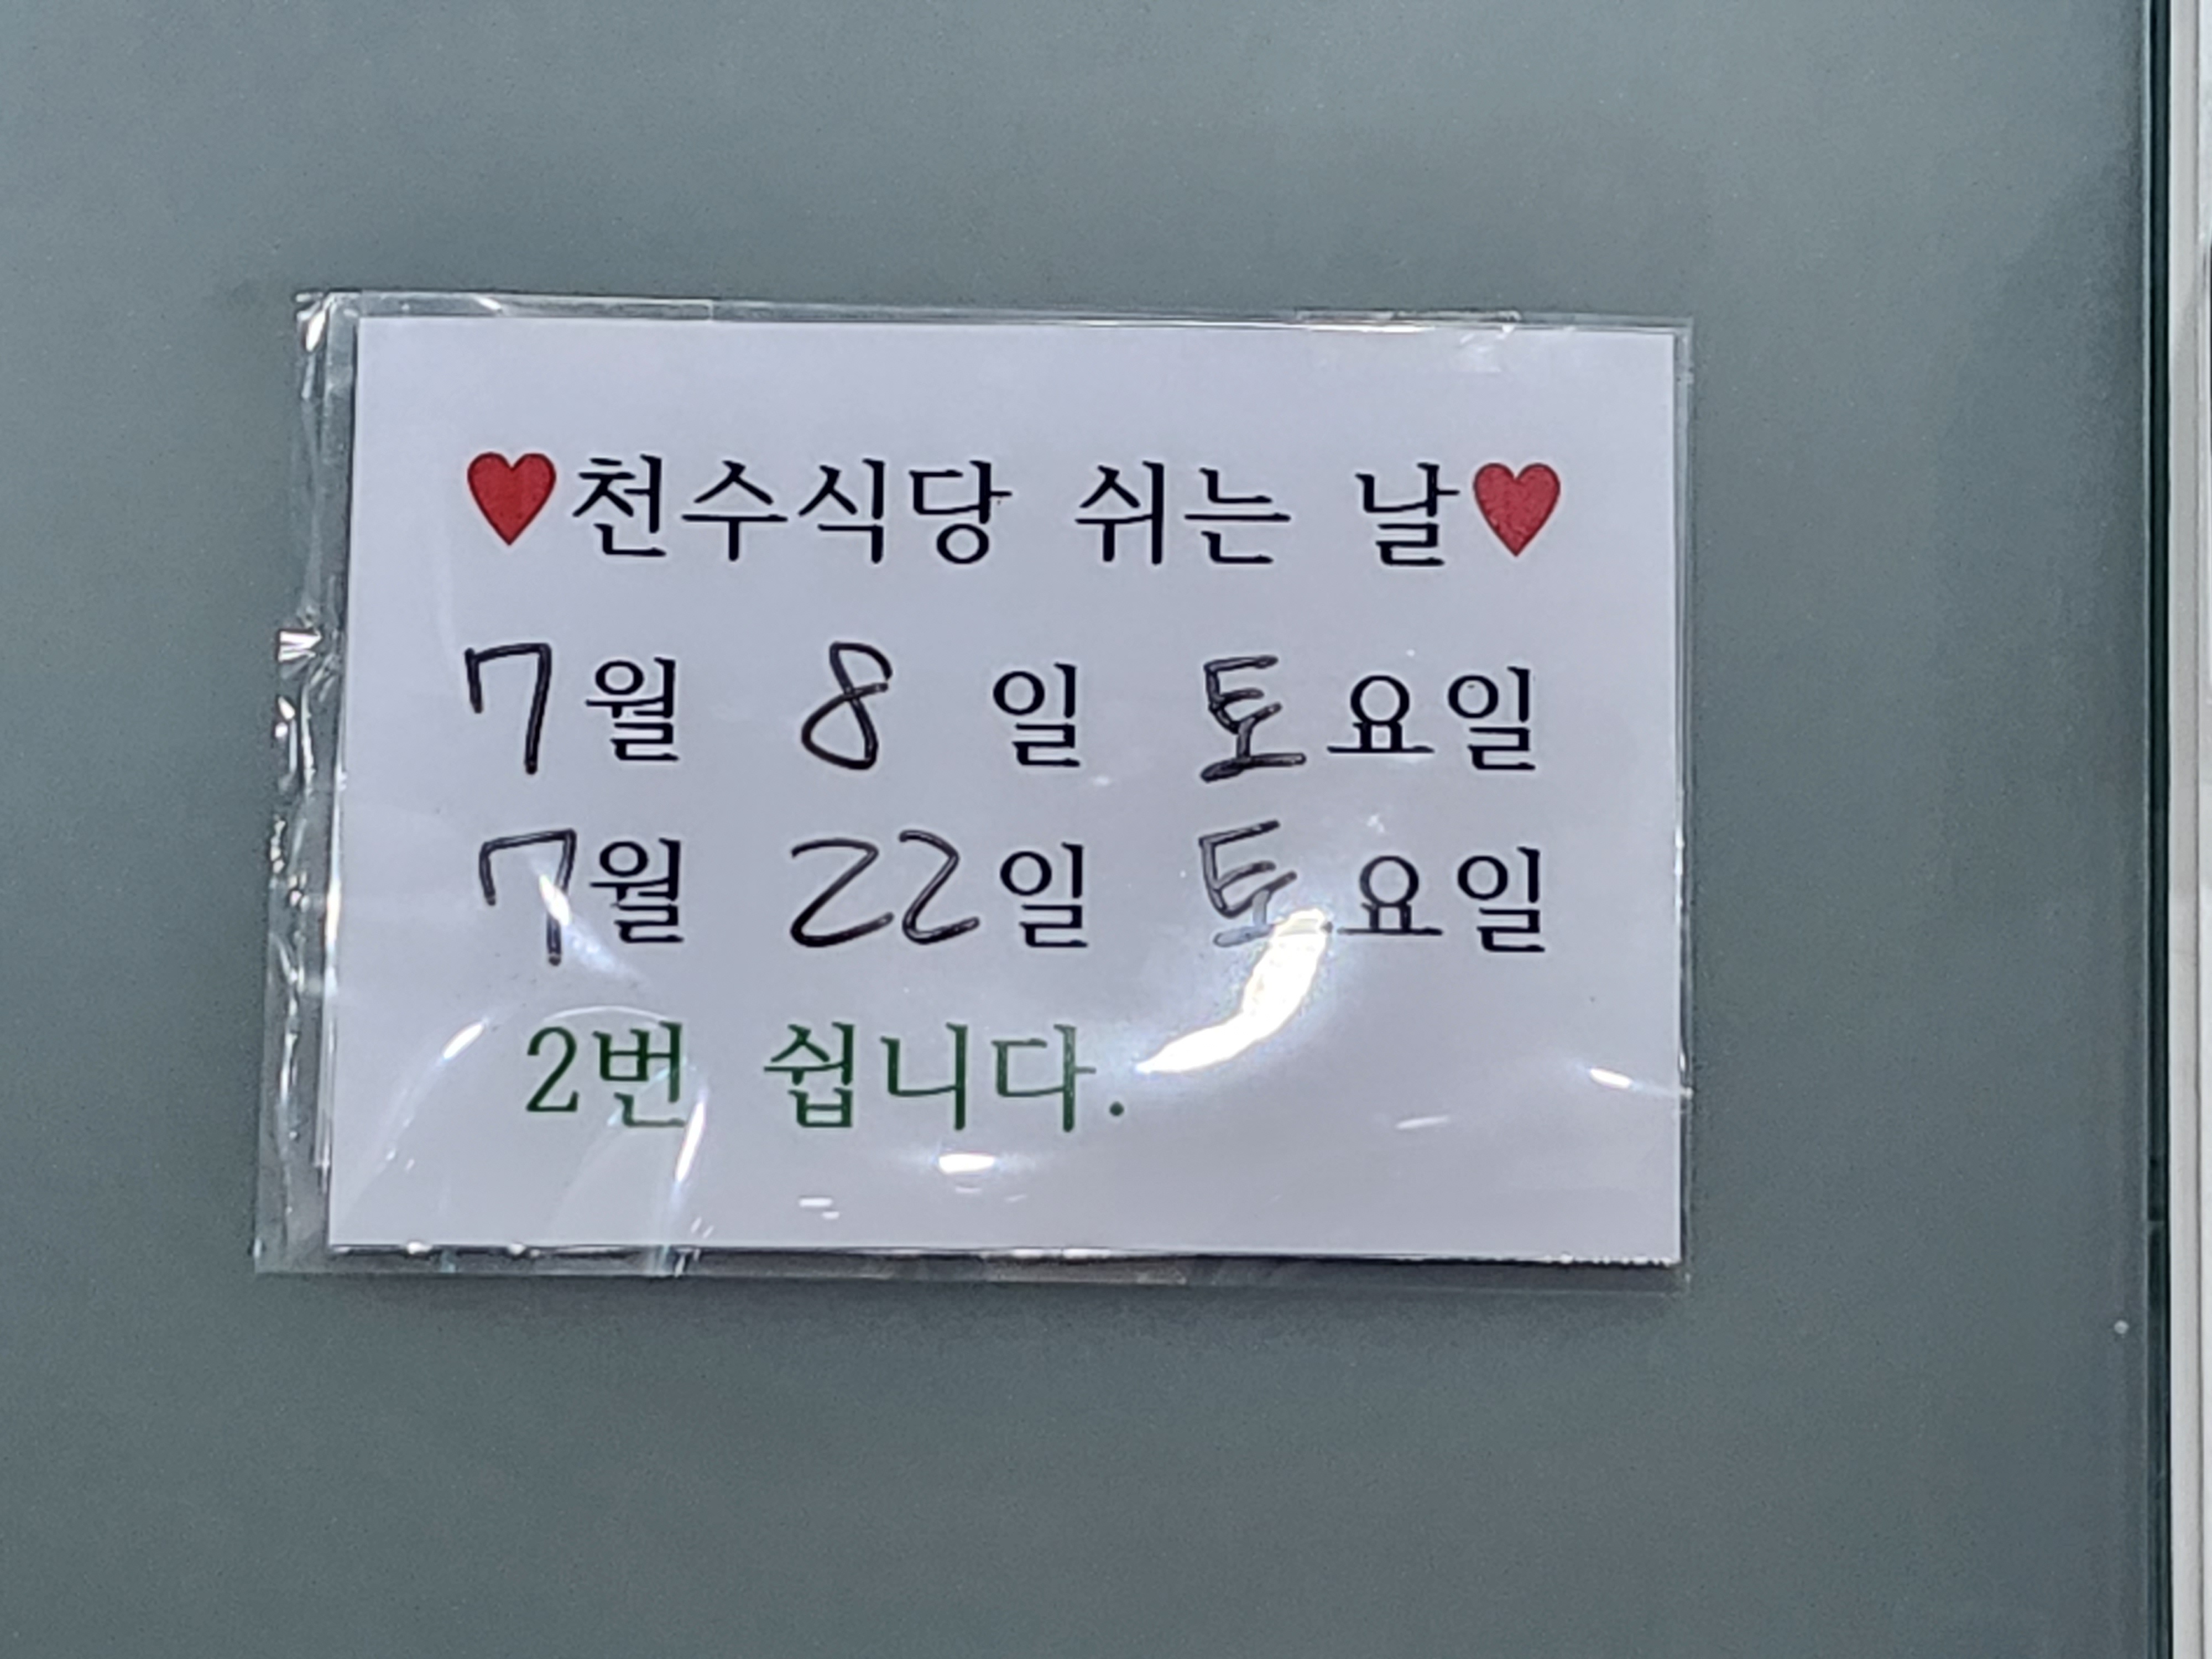 ♥천수식당 쉬는 날♥
7월 8 일 토요일
7월 22일 토요일
2번 쉽니다.